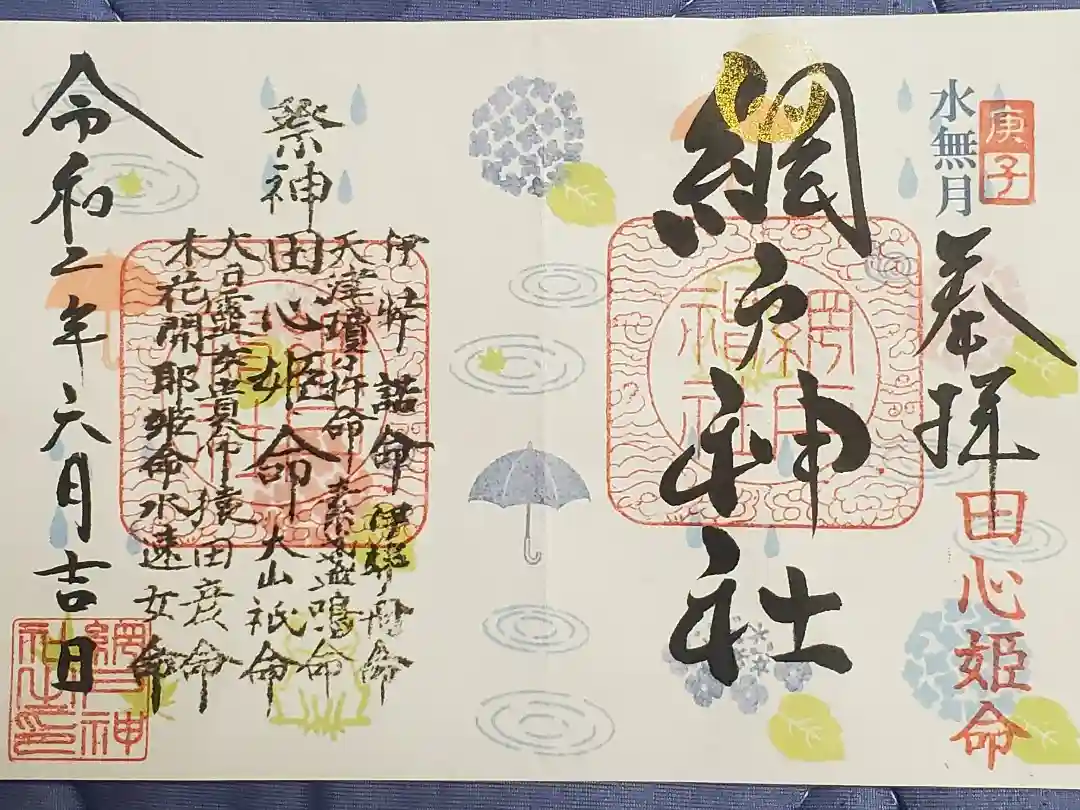 庚子
水無月
奉拝
田心姫命
網戸神社
網戸
神社
祭神
伊弉諾命 伊弉冉命
天津瓊々杵命 素盞鳴命
田心姫命 大山祇命
大日孁貴命 猿田彦命
木花開耶姫命 水速女命
令和二年六月吉日
網戸神
社之印